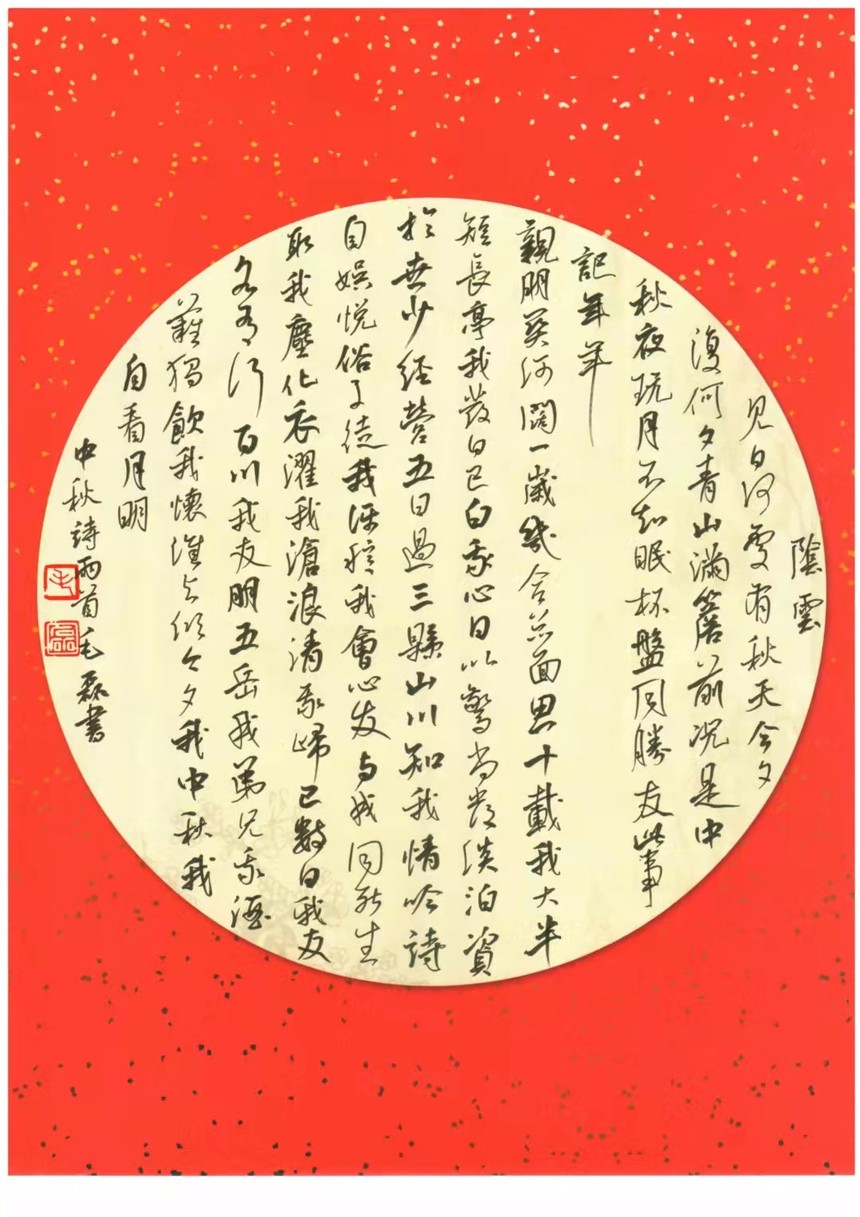 陰雲
見日何有秋天今夕
復何夕青山滿簷前況是中
秋夜玩月不知眠杯盤同勝友此事
記年年
親朋契何闊一歲幾合面思十載我大半
短長亭我髮日已白我心日以驚尚淡泊資
於世少經營五日過三縣山川知我情吟詩
自娛悅俗子徒我我會心友與我同死生
取我塵化衣濯我滄浪清我歸已數日我友
各有行百川我友朋五岳我弟兄我酒
難獨飲我懷誰與傾今夕我中秋我
自看月明
中秋詩兩首毛磊書
毛
磊